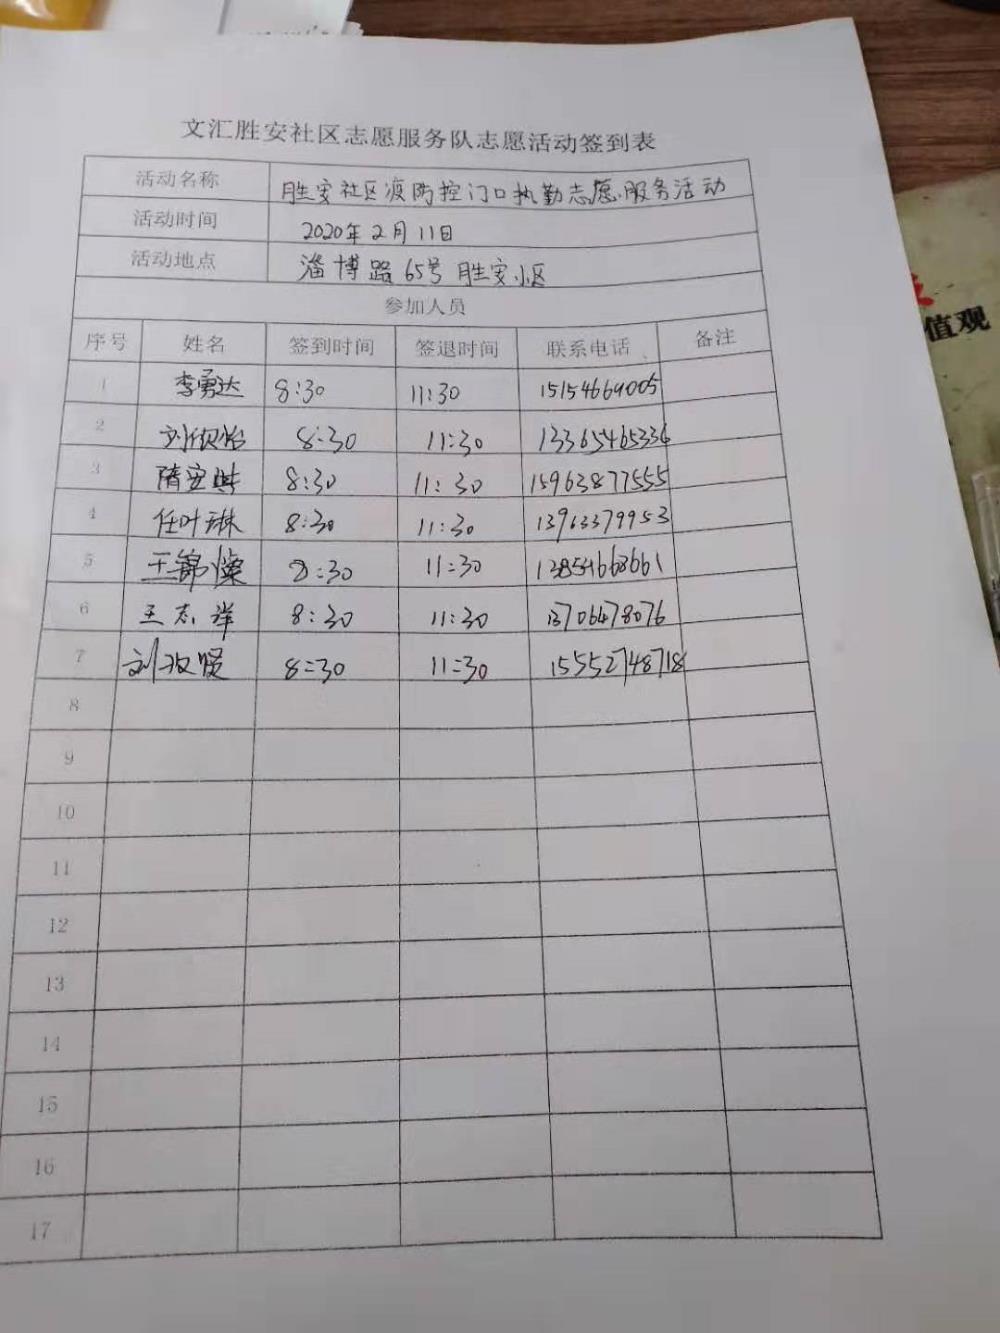 文汇胜安社区志愿服务队志愿活动签到表
活动名称 胜安社区疫防控门口执勤志愿服务活动
活动时间 2020年2月11日
活动地点 淄博路65号胜安小区
参加人员
序号 姓名 签到时间 签退时间 联系电话 备注
1 李勇达 8:30 11:30 15154669005
2 刘 8:30 11:30 13365465336
3 隋安 8:30 11:30 15963877555
4 任叶琳 8:30 11:30 13963379953
5 王锦灿 8:30 11:30 13854668661
6 王志祥 8:30 11:30 13706478076
7 刘政贤 8:30 11:30 15552748718
8
9
10
11
12
13
14
15
16
17
值观